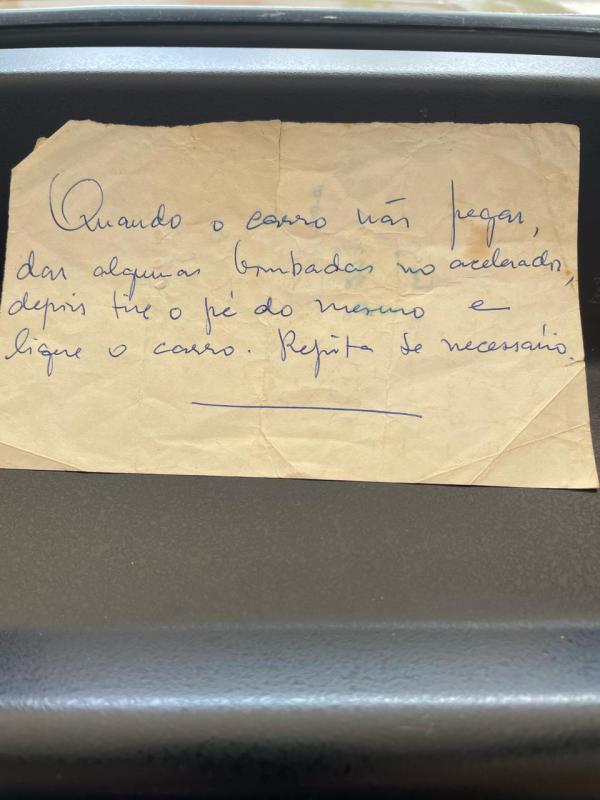 Quando o carro não pegar,
dar algumas bombadas no acelerador,
depois tire o pé do mesmo e
ligue o carro. Repita se necessário.